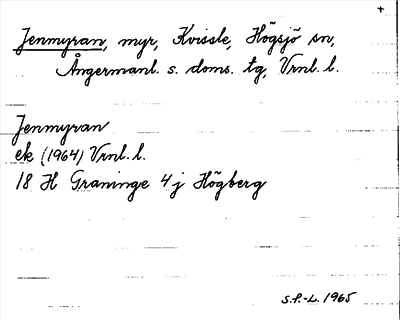 Jenmyran, myr, Kvissle, Högsjö sn,
Ångermanl. s. doms. tg, Vrnl. l.
Jenmyran
ek (1964) Vrnl. l.
18 H Graninge 4 j Högberg
S.P.-L. 1965